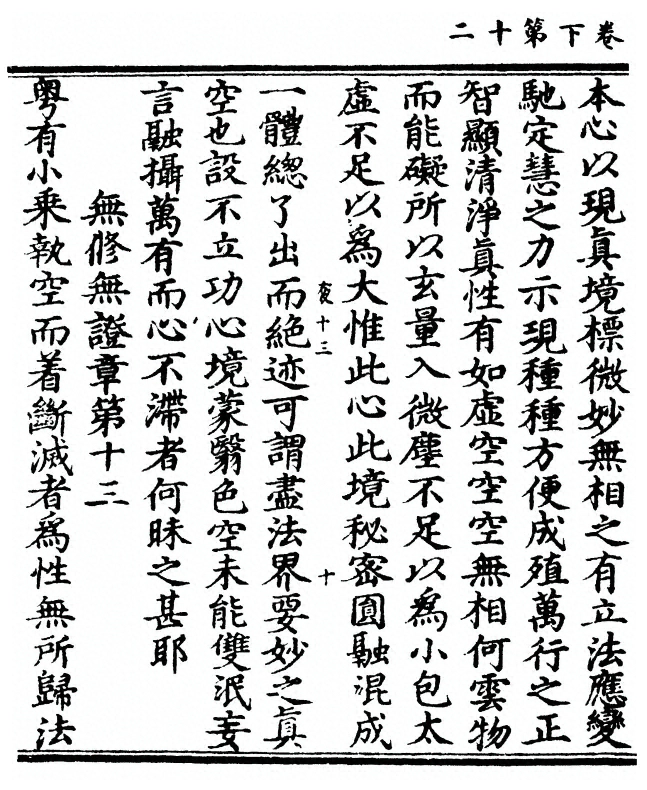 卷下第十二
本心以現眞境標微妙無相之有立法應變
馳定慧之力示現種種方便成殖萬行之正
智顯清淨眞性有如虛空空空無相何雲物
而能礙所以玄量入微塵不足以爲小包太
虛不足以爲大惟此心此境秘密圓融混成
十三
十
一體總了出而絶迹可謂盡法界要妙之眞
空也設不立功心境蒙翳色空未能雙泯妄
言融攝萬有而心不滯者何昧之甚耶
無修無證章第十三
粤有小乘執空而着斷滅者爲性無所歸法